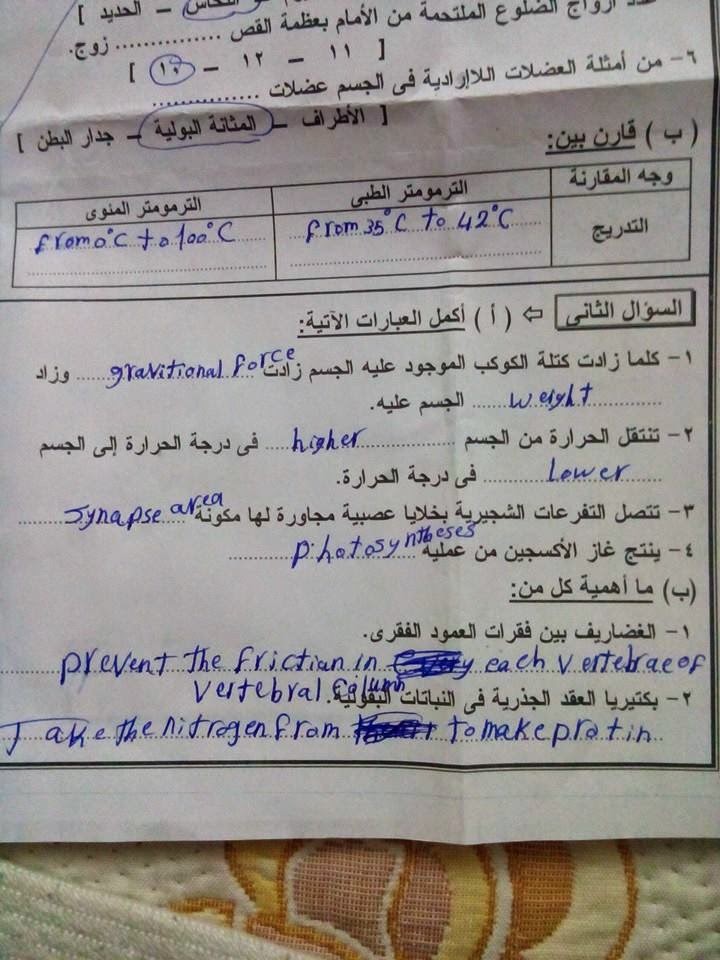 النحاس – الحديد ]
عدد أزواج الضلوع الملتحمة من الأمام بعظمة القص .............. زوج.
[ ١١ – ١٢ – ١٠ ]
٦- من أمثلة العضلات اللاإرادية فى الجسم عضلات ..............
[ الأطراف – المثانة البولية – جدار البطن ]
( ب ) قارن بين:
وجه المقارنة الترمومتر الطبى الترمومتر المئوى
التدريج from 35°C to 42°C from 0°C to 100°C
السؤال الثانى ⇦ ( أ ) أكمل العبارات الآتية:
١- كلما زادت كتلة الكوكب الموجود عليه الجسم زادت gravitional force وزاد
weight الجسم عليه.
٢- تنتقل الحرارة من الجسم higher فى درجة الحرارة إلى الجسم
Lower فى درجة الحرارة.
٣- تتصل التفرعات الشجيرية بخلايا عصبية مجاورة لها مكونة synapse area
٤- ينتج غاز الأكسجين من عملية photosyntheses
(ب) ما أهمية كل من:
١- الغضاريف بين فقرات العمود الفقرى.
prevent the frictian in each vertebrae of
vertebral column
٢- بكتيريا العقد الجذرية فى النباتات البقولية.
Take the nitrogen from to make protin